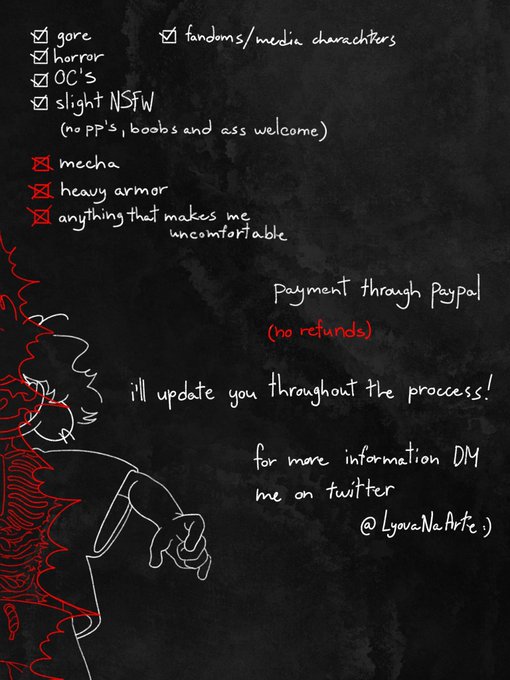 gore
fandoms/media charachters
horror
OC's
slight NSFW
(no pp's, boobs and ass welcome)
mecha
heavy armor
anything that makes me
uncomfortable
payment through paypal
(no refunds)
i'll update you throughout the proccess!
for more information DM
me on twitter
@LyovaNaArte :)